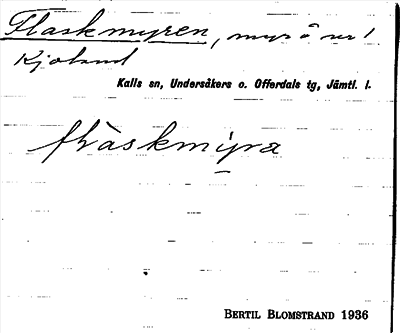 Flaskmyren, myr å nr 1
Kjoland
Kalls sn, Undersåkers o. Offerdals tg, Jämtl. l.
flàskmyra
BERTIL BLOMSTRAND 1936